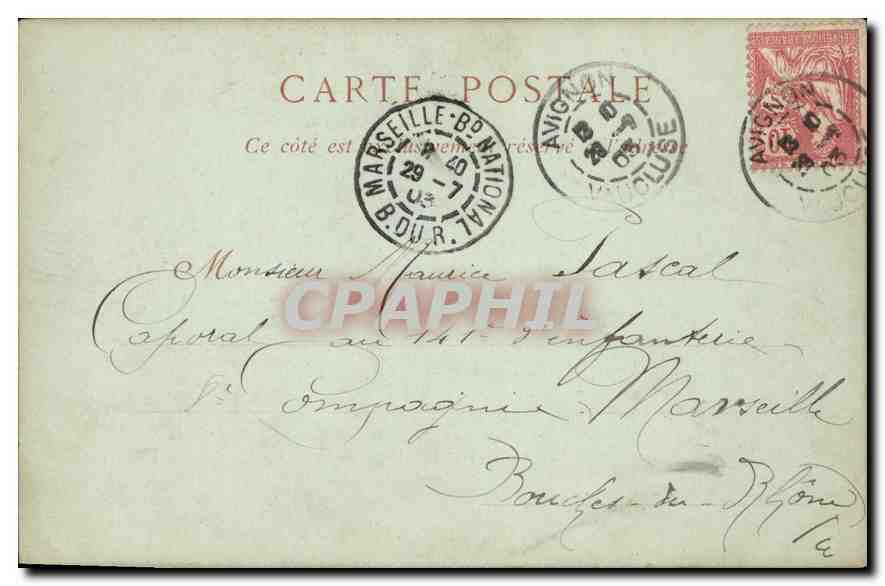 CARTE POSTALE
Ce côté est exclusivement réservé à l'adresse
MARSEILLE-Bd NATIONAL
40
29 -7
03
B. DU R.
AVIGNON
28
03
VAUCLUSE
AVIGNON
28
03
VAUCLUSE
Monsieur Maurice Pascal
Caporal au 141e d'infanterie
Compagnie Marseille
Bouches-du-Rhône
CPAPHIL